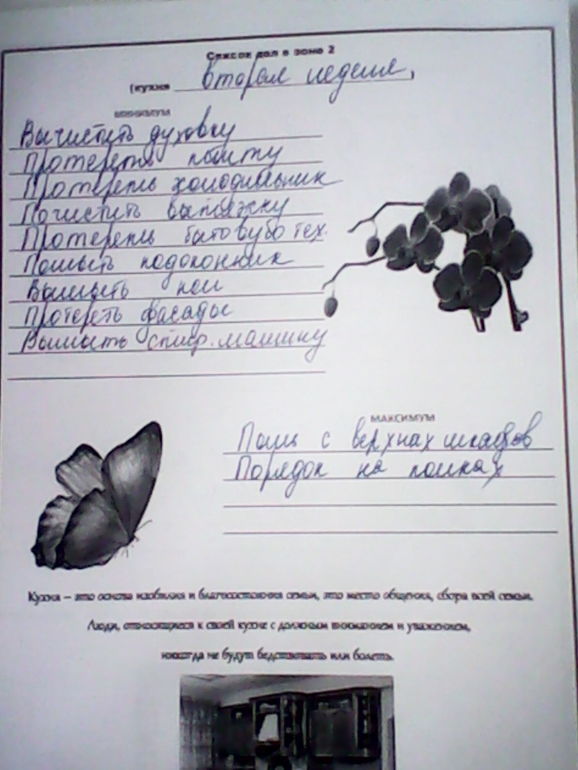 Список дел в зоне 2
(кухня вторая неделя,
минимум
Вычистить духовку
Протереть плиту
Протереть холодильник
Почистить вытяжку
Протереть бытовую тех.
Помыть подоконник
Вымыть пол
Протереть фасады
Вымыть стир. машину
МАКСИМУМ
Пыль с верхнах шкафов
Порядок на полках
Кухня – это основа изобилия и благосостояния семьи, это место общения, сбора всей семьи.
Люди, относящиеся к своей кухне с должным вниманием и уважением,
никогда не будут бедствовать или болеть.